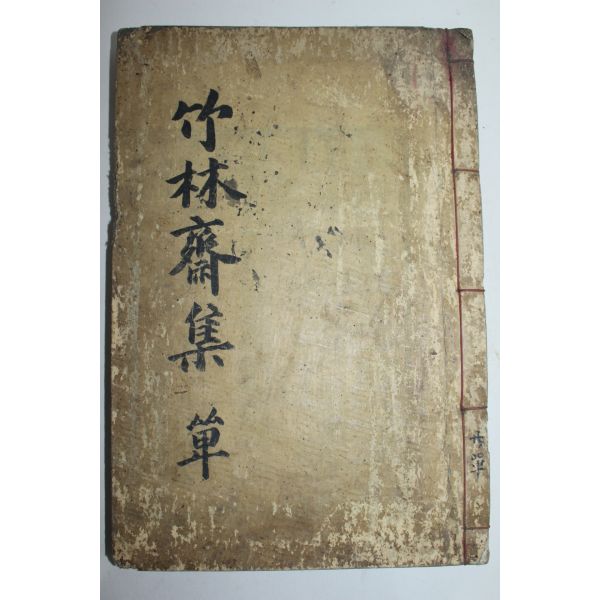 竹林齋集 單